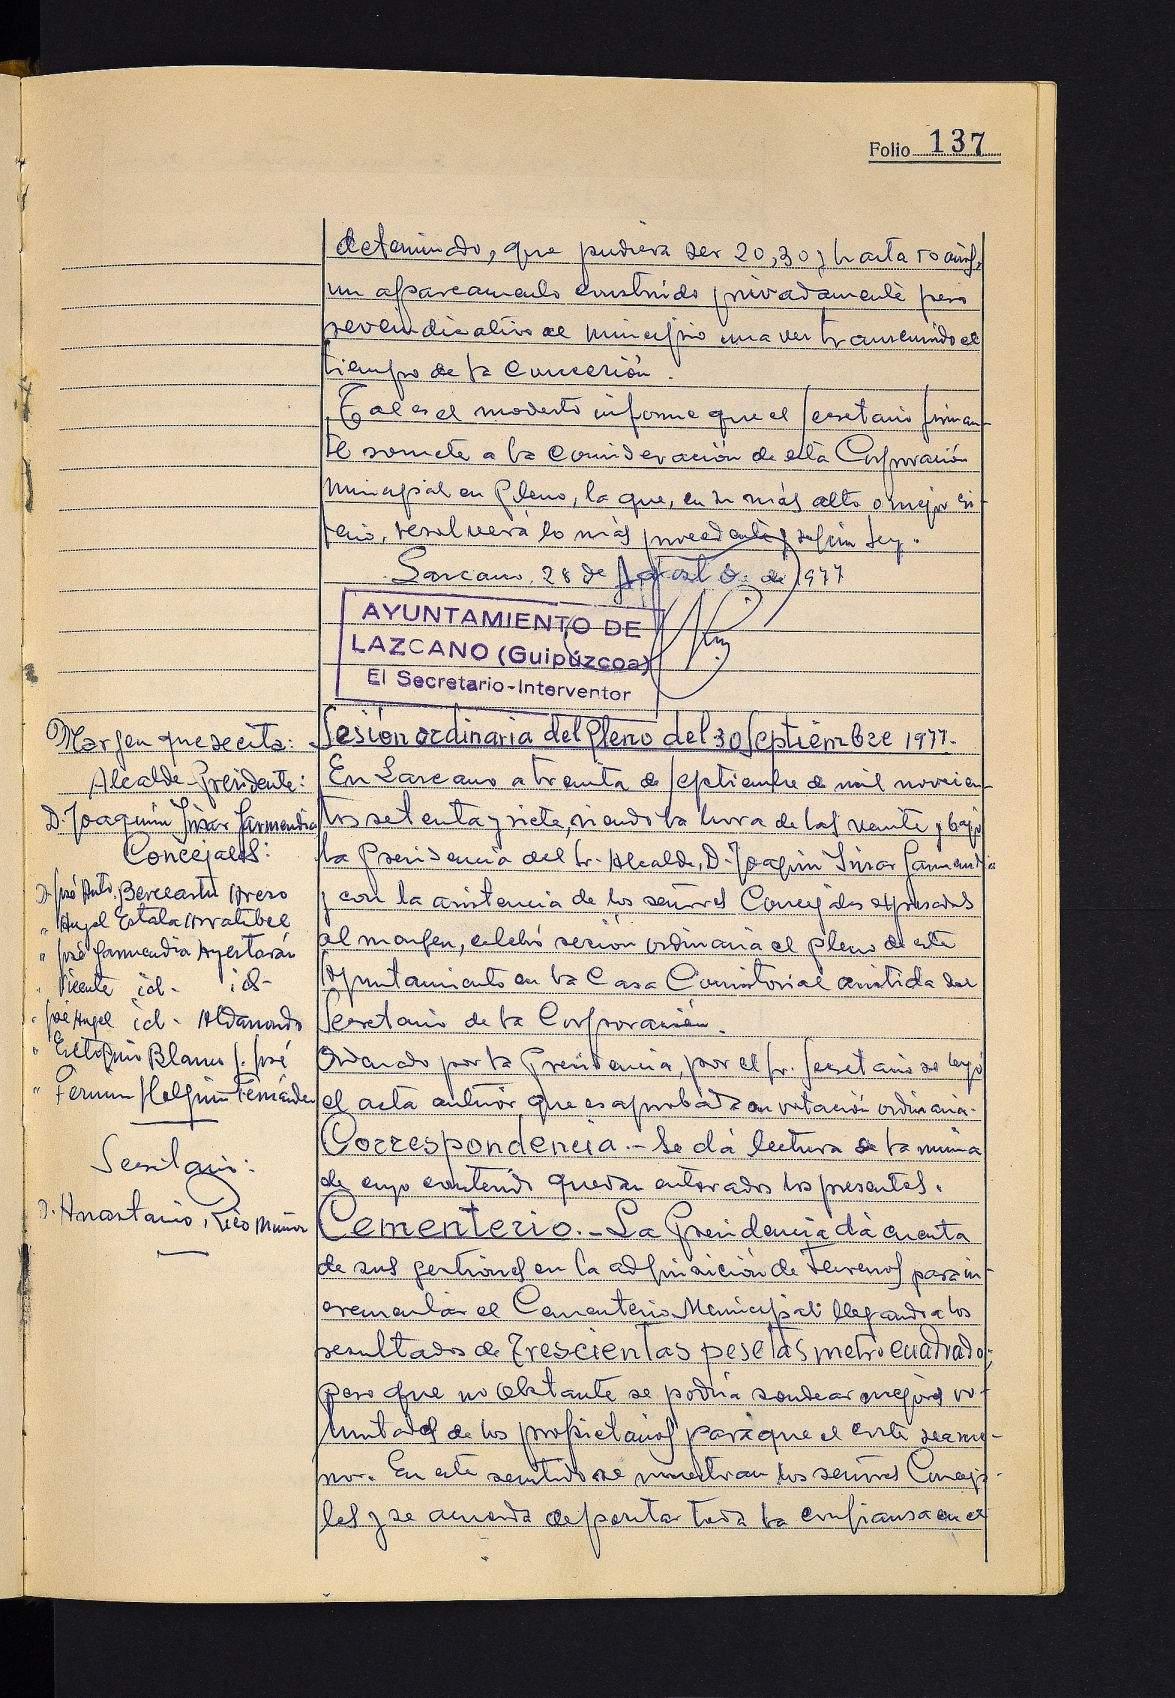 Folio 137
determinado, que pudiera ser 20, 30 y hasta 50 años,
un aparcamento construido privadamente pero
reveindicativo al municipio una vez transcurrido el
tiempo de la concesión.
Tal es el modesto informe que el Secretario firman-
te somete a la consideración de esta Corporación
Municipal en Pleno, la que, en su más alto o mejor cri-
terio, resolverá lo más procedente según Ley.
Lazcano, 28 de Agosto de 1977
AYUNTAMIENTO DE
LAZCANO (Guipúzcoa)
El Secretario-Interventor
Margen que se cita:
Alcalde-Presidente:
D. Joaquín Jmar Garmendia
Concejales:
D. José Anto. Berceartu Orero
" Angel Estala
" José Garmendia Ayestarán
" Vicente id- id-
" José Angel id- Aldanondo
" Blanco S. José
" Fermin Holguin Fernández
Secretario:
D. Anastasio Rico Muñoz
Sesión ordinaria del Pleno del 30 Septiembre 1977.-
En Lazcano a treinta de Septiembre de mil novecien-
tos setenta y siete, siendo la hora de las veinte y bajo
la Presidencia del Sr. Alcalde, D. Joaquín Garmendia
y con la asistencia de los señores Concejales expresados
al margen, celebró sesión ordinaria el Pleno de este
Ayuntamiento en la Casa Consistorial asistida del
Secretario de la Corporación.
Ordenado por la Presidencia, por el Sr. Secretario se leyó
el acta anterior que es aprobada en votación ordinaria.
Correspondencia.- Se dá lectura de la misma
de cuyo contenido quedan enterados los presentes.
Cementerio.- La Presidencia dá cuenta
de sus gestiones en la adquisición de terrenos para in-
crementar el Cementerio Municipal llegando a los
resultados de Trescientas pesetas metro cuadrado,
pero que no obstante se podría sondear mejores vo-
luntades de los propietarios para que el coste sea me-
nor. En este sentido se muestran los señores Conceja-
les y se acuerda depositar toda la confianza en el